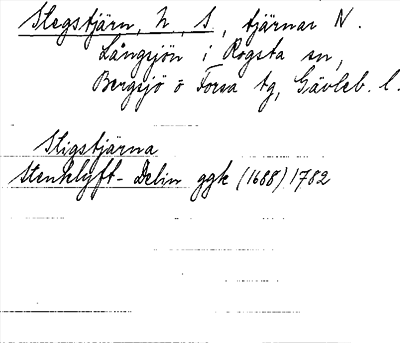 Stegstjärn, N, S, tjärnar N.
Långsjön i Rogsta sn,
Bergsjö o Forsa tg, Gävleb. l.
Stigstjärna
Stenklyft- Delin ggk (1688) 1782